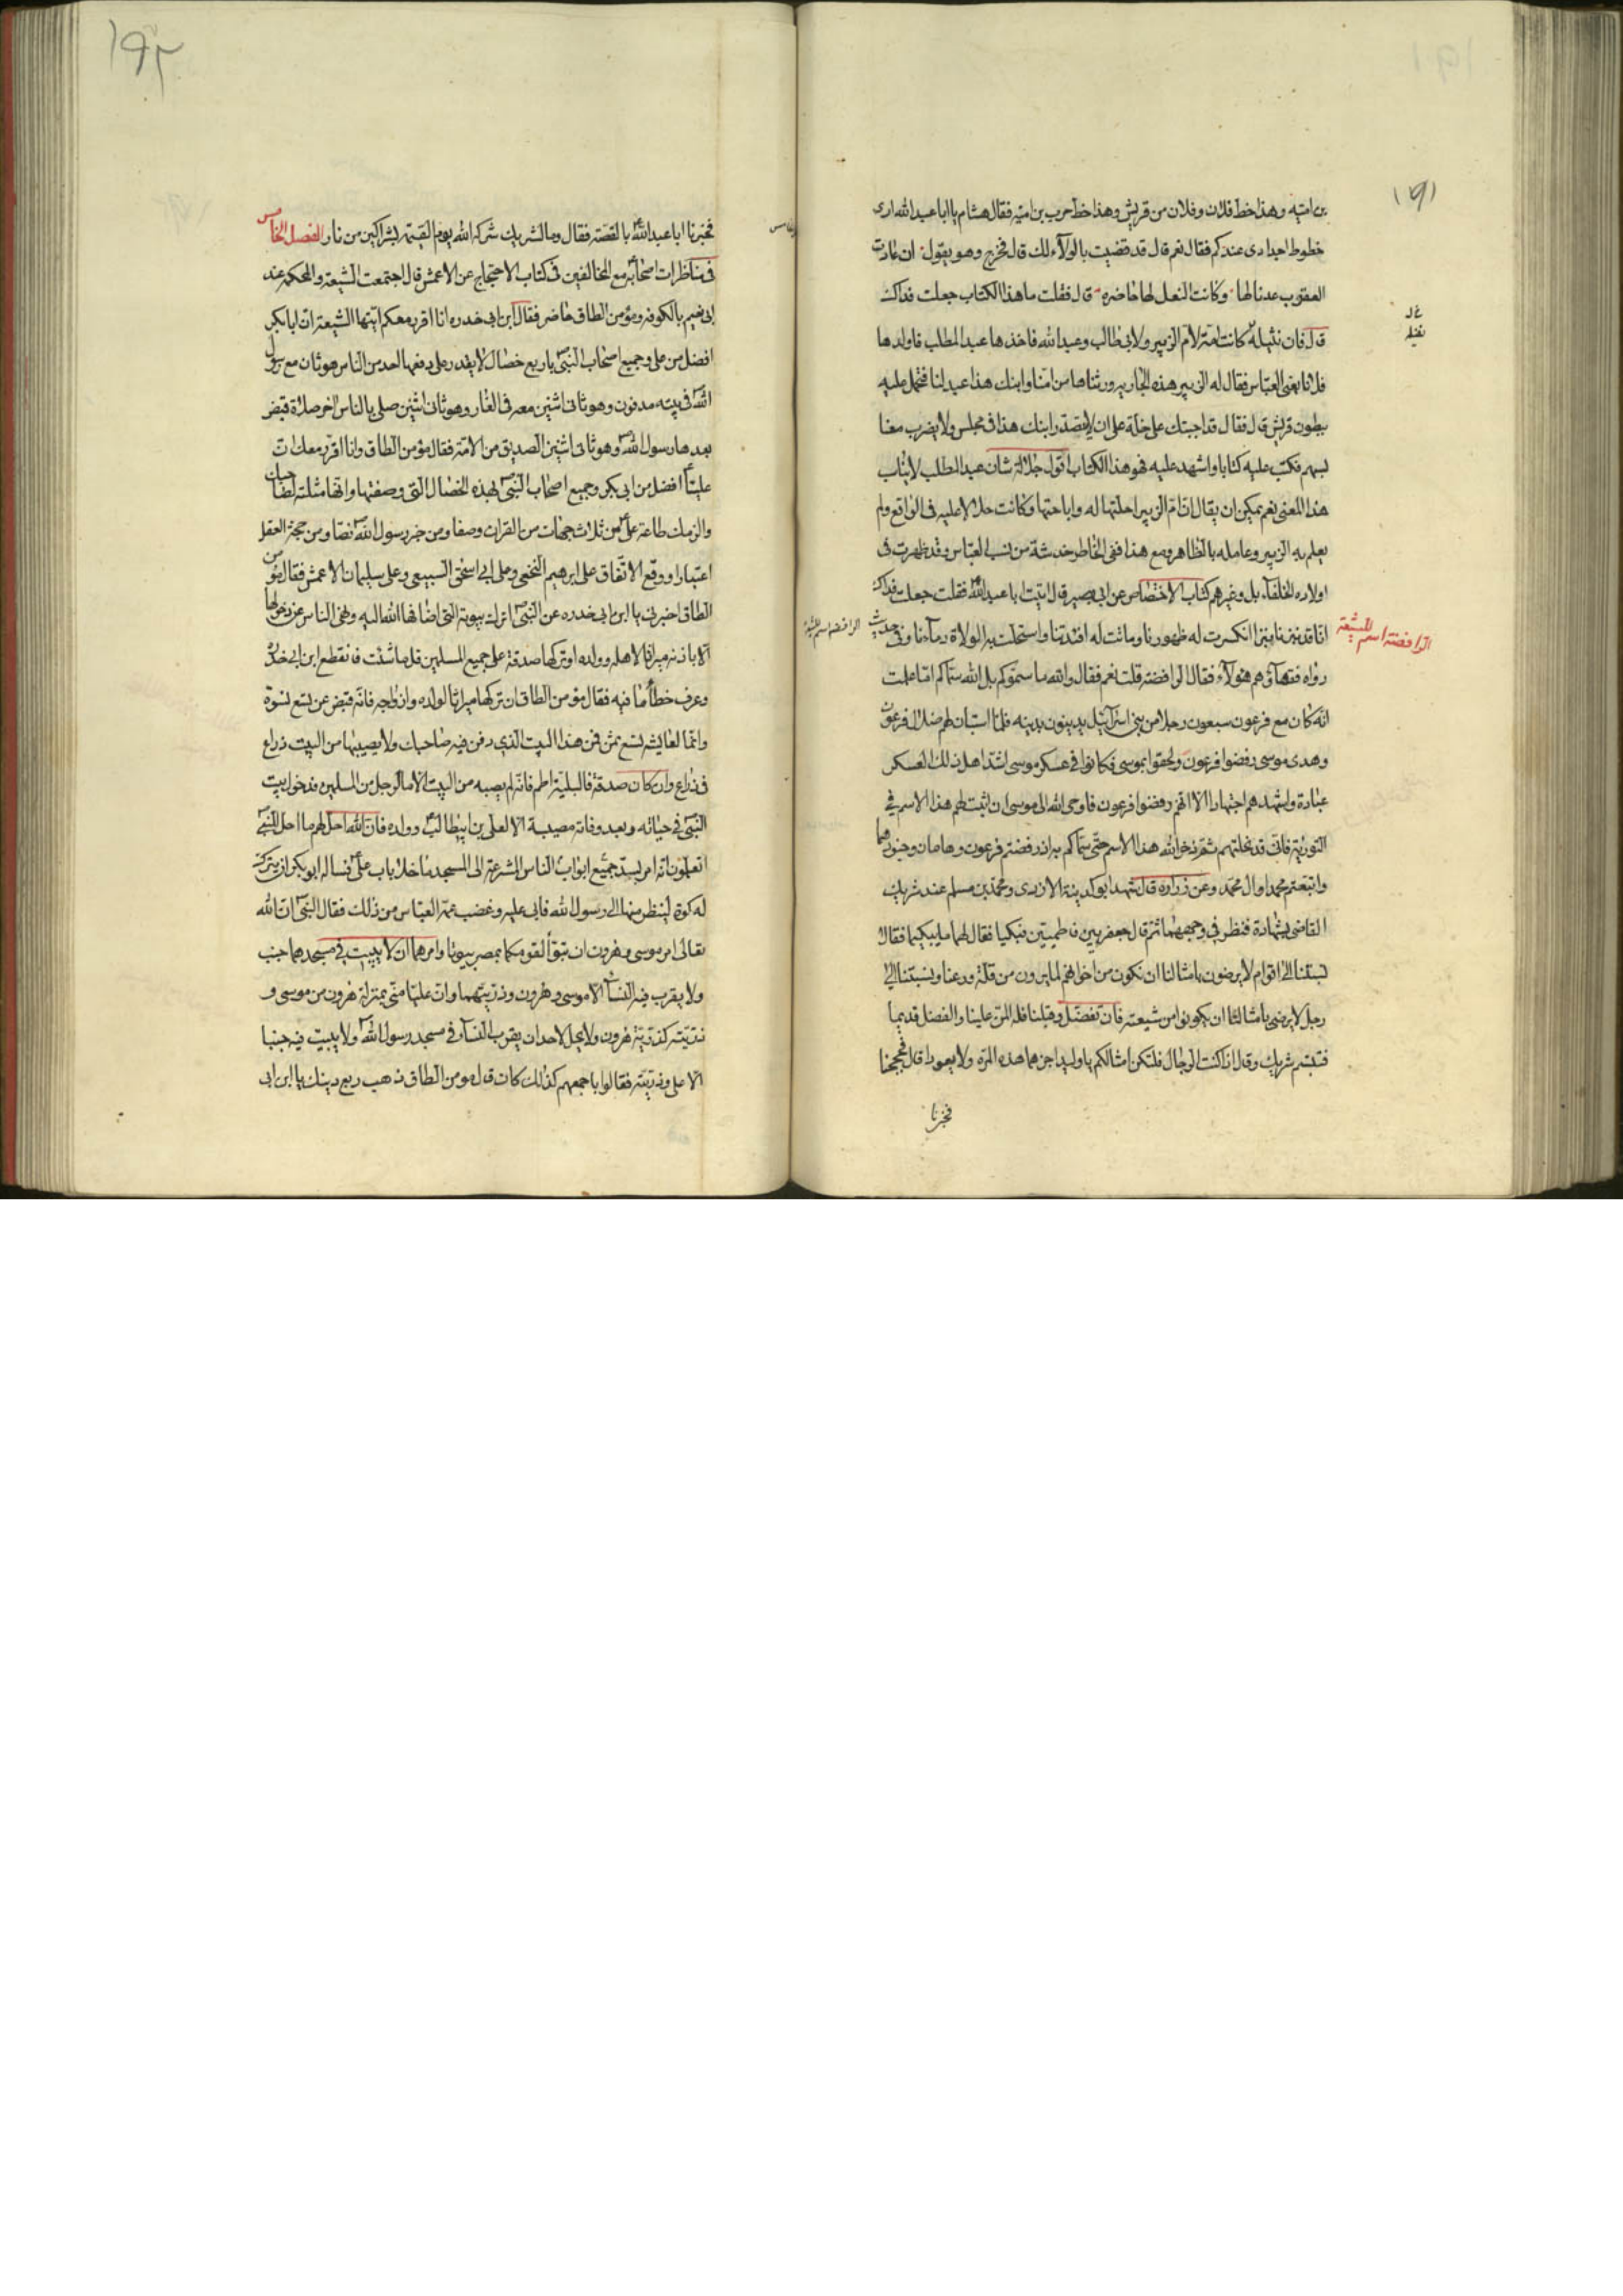 ١٩١
بن امية وهذا خط فلان وفلان من قريش وهذا خط حرب بن امية فقال هشام يا ابا عبد الله ارى
خطوط اجدادى عندكم فقال نعم قال قد قضيت بالولاء لك قال فخرج وهو يقول ان عادت
العقرب عدنا لها وكانت النعل لها حاضره قال فقلت ما هذا الكتاب جعلت فداك
قال فان نثيلة كانت امة لام الزبير ولابى طالب وعبد الله فاخذها عبد المطلب فاولدها
فلانا يعنى العباس فقال له الزبير هذه الجارية ورثناها من امنا وابنك هذا عبد لنا فتحمل عليه
ببطون قريش قال فقال قد اجبتك على خلة على ان لا يتصدر ابنك هذا فى مجلس ولا يضرب معنا
بسهم فكتب عليه كتابا واشهد عليه فهو هذا الكتاب اقول جلالة شان عبد المطلب لا يناب
هذا المعنى نعم يمكن ان يقال ان ام الزبير احلتها له واباحتها وكانت حلالا عليه فى الواقع ولم
يعلم به الزبير وعامله بالظاهر ومع هذا ففى الخاطر خدشة من نسب العباس وقد ظهرت فى
اولاده الخلفاء بل وغيرهم كتاب الاختصاص عن ابى بصير قال اتيت ابا عبد الله فقلت جعلت فداك
الرافضة اسم للشيعة
انا قد نبزنا نبزا انكسرت له ظهورنا وماتت له افئدتنا واستحلت به الولاة دماءنا فى حديث
رواه فقهاؤهم هؤلاء فقال الرافضة قلت نعم فقال والله ما سموكم بل الله سماكم اما علمت
انه كان مع فرعون سبعون رجلا من بنى اسرائيل يدينون بدينه فلما استبان لهم ضلال فرعون
وهدى موسى رفضوا فرعون ولحقوا بموسى فكانوا فى عسكر موسى اشد اهل ذلك العسكر
عبادة واشدهم اجتهادا الا انهم رفضوا فرعون فاوحى الله الى موسى ان اثبت لهم هذا الاسم فى
التورية فانى قد نحلتهم ثم ذخر الله هذا الاسم حتى سماكم به اذ رفضتم فرعون وهامان وجنودهما
واتبعتم محمدا وال محمد وعن زرارة قال شهد ابو كدينة الازدى ومحمد بن مسلم عند شريك
القاضى بشهادة فنظر فى وجههما ثم قال جعفريين فاطميين فبكيا فقال لهما ما يبكيكما فقالا
نسبتنا الى اقوام لا يرضون بامثالنا ان نكون من اخوانهم لما يرون من قلة ورعنا ونسبتنا الى
رجل لا يرضى بامثالنا ان يكونوا من شيعته فان تفضل وقبلنا فله المن علينا والفضل قديما
فتبسم شريك وقال اذا كنت الرجال فلتكن امثالكم يا وليد اجزهما هذه المرة ولا يعودا قال فحججنا
فخبرنا
١٩٢
فخبرنا ابا عبد الله بالقصة فقال وما لشريك شركه الله يوم القيمة بشراكين من نار الفصل الخامس
فى مناظرات اصحابه مع المخالفين فى كتاب الاحتجاج عن الاعمش قال اجتمعت الشيعة والمحكمة عند
ابى نعيم بالكوفه ومؤمن الطاق حاضر فقال ابن ابى خدره انا اقرر معكم ايتها الشيعة ان ابا بكر
افضل من على وجميع اصحاب النبى باربع خصال لا يقدر على دفعها احد من الناس هو ثان مع رسول
الله فى بيته مدفون وهو ثانى اثنين معه فى الغار وهو ثانى اثنين صلى بالناس اخر صلاة قبض
بعدها رسول الله وهو ثانى اثنين الصديق من الامة فقال مؤمن الطاق وانا اقرر معك ان
عليا افضل من ابى بكر وجميع اصحاب النبى بهذه الخصال التى وصفتها وانها مثلبة لصاحبك
والزمك طاعة على من ثلاث جهات من القران وصفا ومن خبر رسول الله نصا ومن حجة العقل
اعتبارا ووقع الاتفاق على ابرهيم النخعى وعلى ابى اسحق السبيعى وعلى سليمان الاعمش فقال مؤمن
الطاق اخبرنى يا ابن ابى خدره عن النبى اترك بيوته التى اضافها الله اليه ونهى الناس عن دخولها
الا باذنه ميراثا لاهله وولده او تركها صدقة على جميع المسلمين قل ما شئت فانقطع ابن ابى خدره
وعرف خطأ ما فيه فقال مؤمن الطاق ان تركها ميراثا لولده وازواجه فانه قبض عن تسع نسوة
وانما لعايشة تسع ثمن هذا البيت الذى دفن فيه صاحبك ولا يصيبها من البيت ذراع
فى ذراع وان كان صدقة فالبلية اطم فانه لم يصبه من البيت الا ما لرجل من المسلمين فدخول بيت
النبى فى حياته وبعد وفاته مصيبة الا لعلى بن ابيطالب وولده فان الله احل لهم ما احل للنبى
اتعلمون انه امر بسد جميع ابواب الناس المشرعة الى المسجد ما خلا باب على فساله ابو بكر ان يترك
له كوة لينظر منها الى رسول الله فابى عليه وغضب عمه العباس من ذلك فقال النبى ان الله
تعالى امر موسى وهرون ان تبوا لقومكما بمصر بيوتا وامرهما ان لا يبيت فى مسجدهما جنب
ولا يقرب فيه النساء الا موسى وهرون وذريتهما وان عليا منى بمنزلة هرون من موسى و
ذريته كذرية هرون ولا يحل لاحد ان يقرب النساء فى مسجد رسول الله ولا يبيت فيه جنبا
الا على وذريته فقالوا باجمعهم كذلك كان قال مومن الطاق ذهب ربع دينك يا ابن ابى